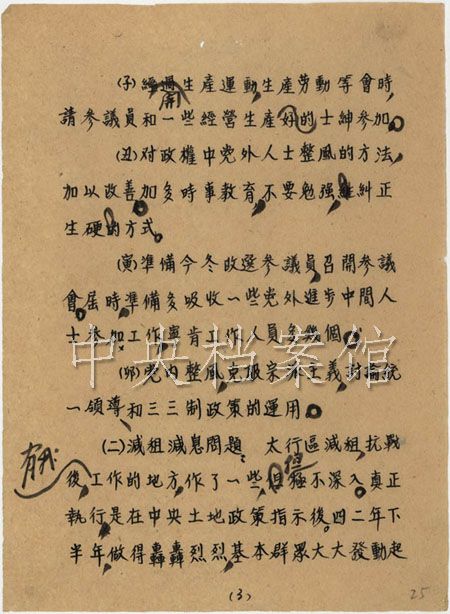 (子)經過開生產運動,生產勞動等會時,
請參議員和一些經營生產好的士紳參加。
(丑)对政權中党外人士整風的方法,
加以改善,加多時事教育,不要勉強,糾正
生硬的方式。
(寅)準備今冬改選參議員召開參議
會。屆時準備多吸收一些党外進步中間人
士參加工作,寧肯工作人員多幾個。
(卯)党內整風克服宗派主義,討論統
一領導和三三制政策的運用。
(二)減租減息問題。太行區減租,抗戰
後,有我工作的地方,作了一些,但還不深入,真正
執行是在中央土地政策指示後。四二年下
半年做得轟轟烈烈,基本群眾大大發動起
(3)
25
中央档案馆